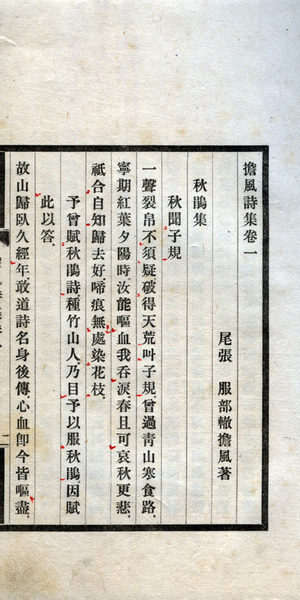 擔風詩集卷一
尾張 服部轍擔風著
秋鵑集
秋聞子規
一聲裂帛不須疑破得天荒叫子規曾過青山寒食路
寧期紅葉夕陽時汝能嘔血我吞淚春且可哀秋更悲
祗合自知歸去好啼痕無處染花枝
予曾賦秋鵑詩種竹山人乃目予以服秋鵑因賦
此以答
故山歸臥久經年敢道詩名身後傳心血即今皆嘔盡